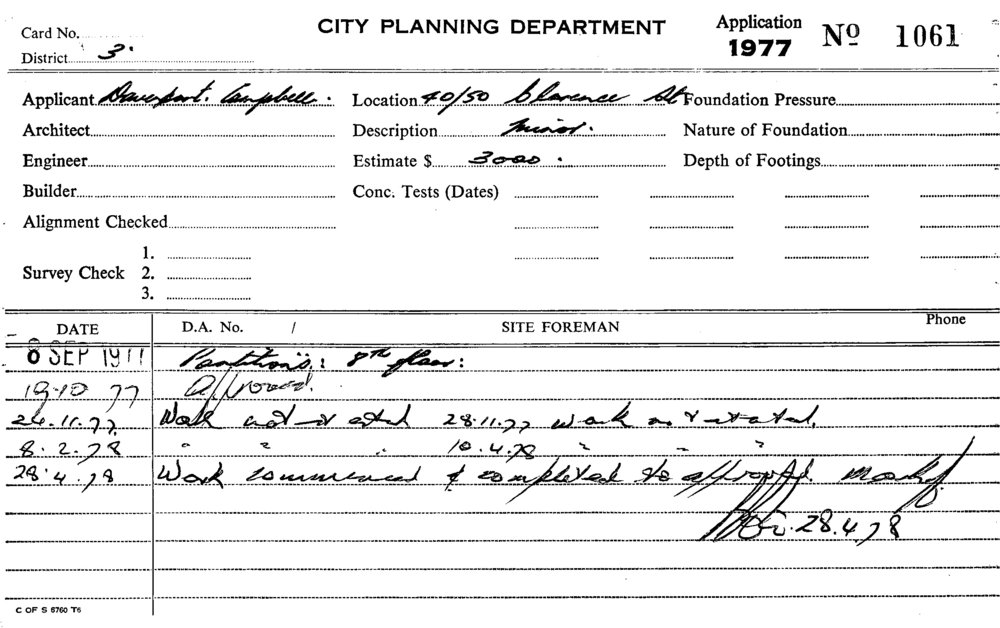 Card No.
CITY PLANNING DEPARTMENT
Application 1977 Nº 1061
District 3.
Applicant Davenport. Campbell. Location 40/50 Clarence St Foundation Pressure
Architect Description minor. Nature of Foundation
Engineer Estimate $ 3000. Depth of Footings
Builder Conc. Tests (Dates)
Alignment Checked
1.
Survey Check 2.
3.
DATE D.A. No. / SITE FOREMAN Phone
8 SEP 1977 Partitions: 8th floor:
19.10 77 Approved.
24.11.77 Work not started 28.11.77 work not started.
8.2.78 " " " 10.4.78 " " "
28.4.78 Work commenced & completed to approval.
28.4.78
C OF S 6760 T6